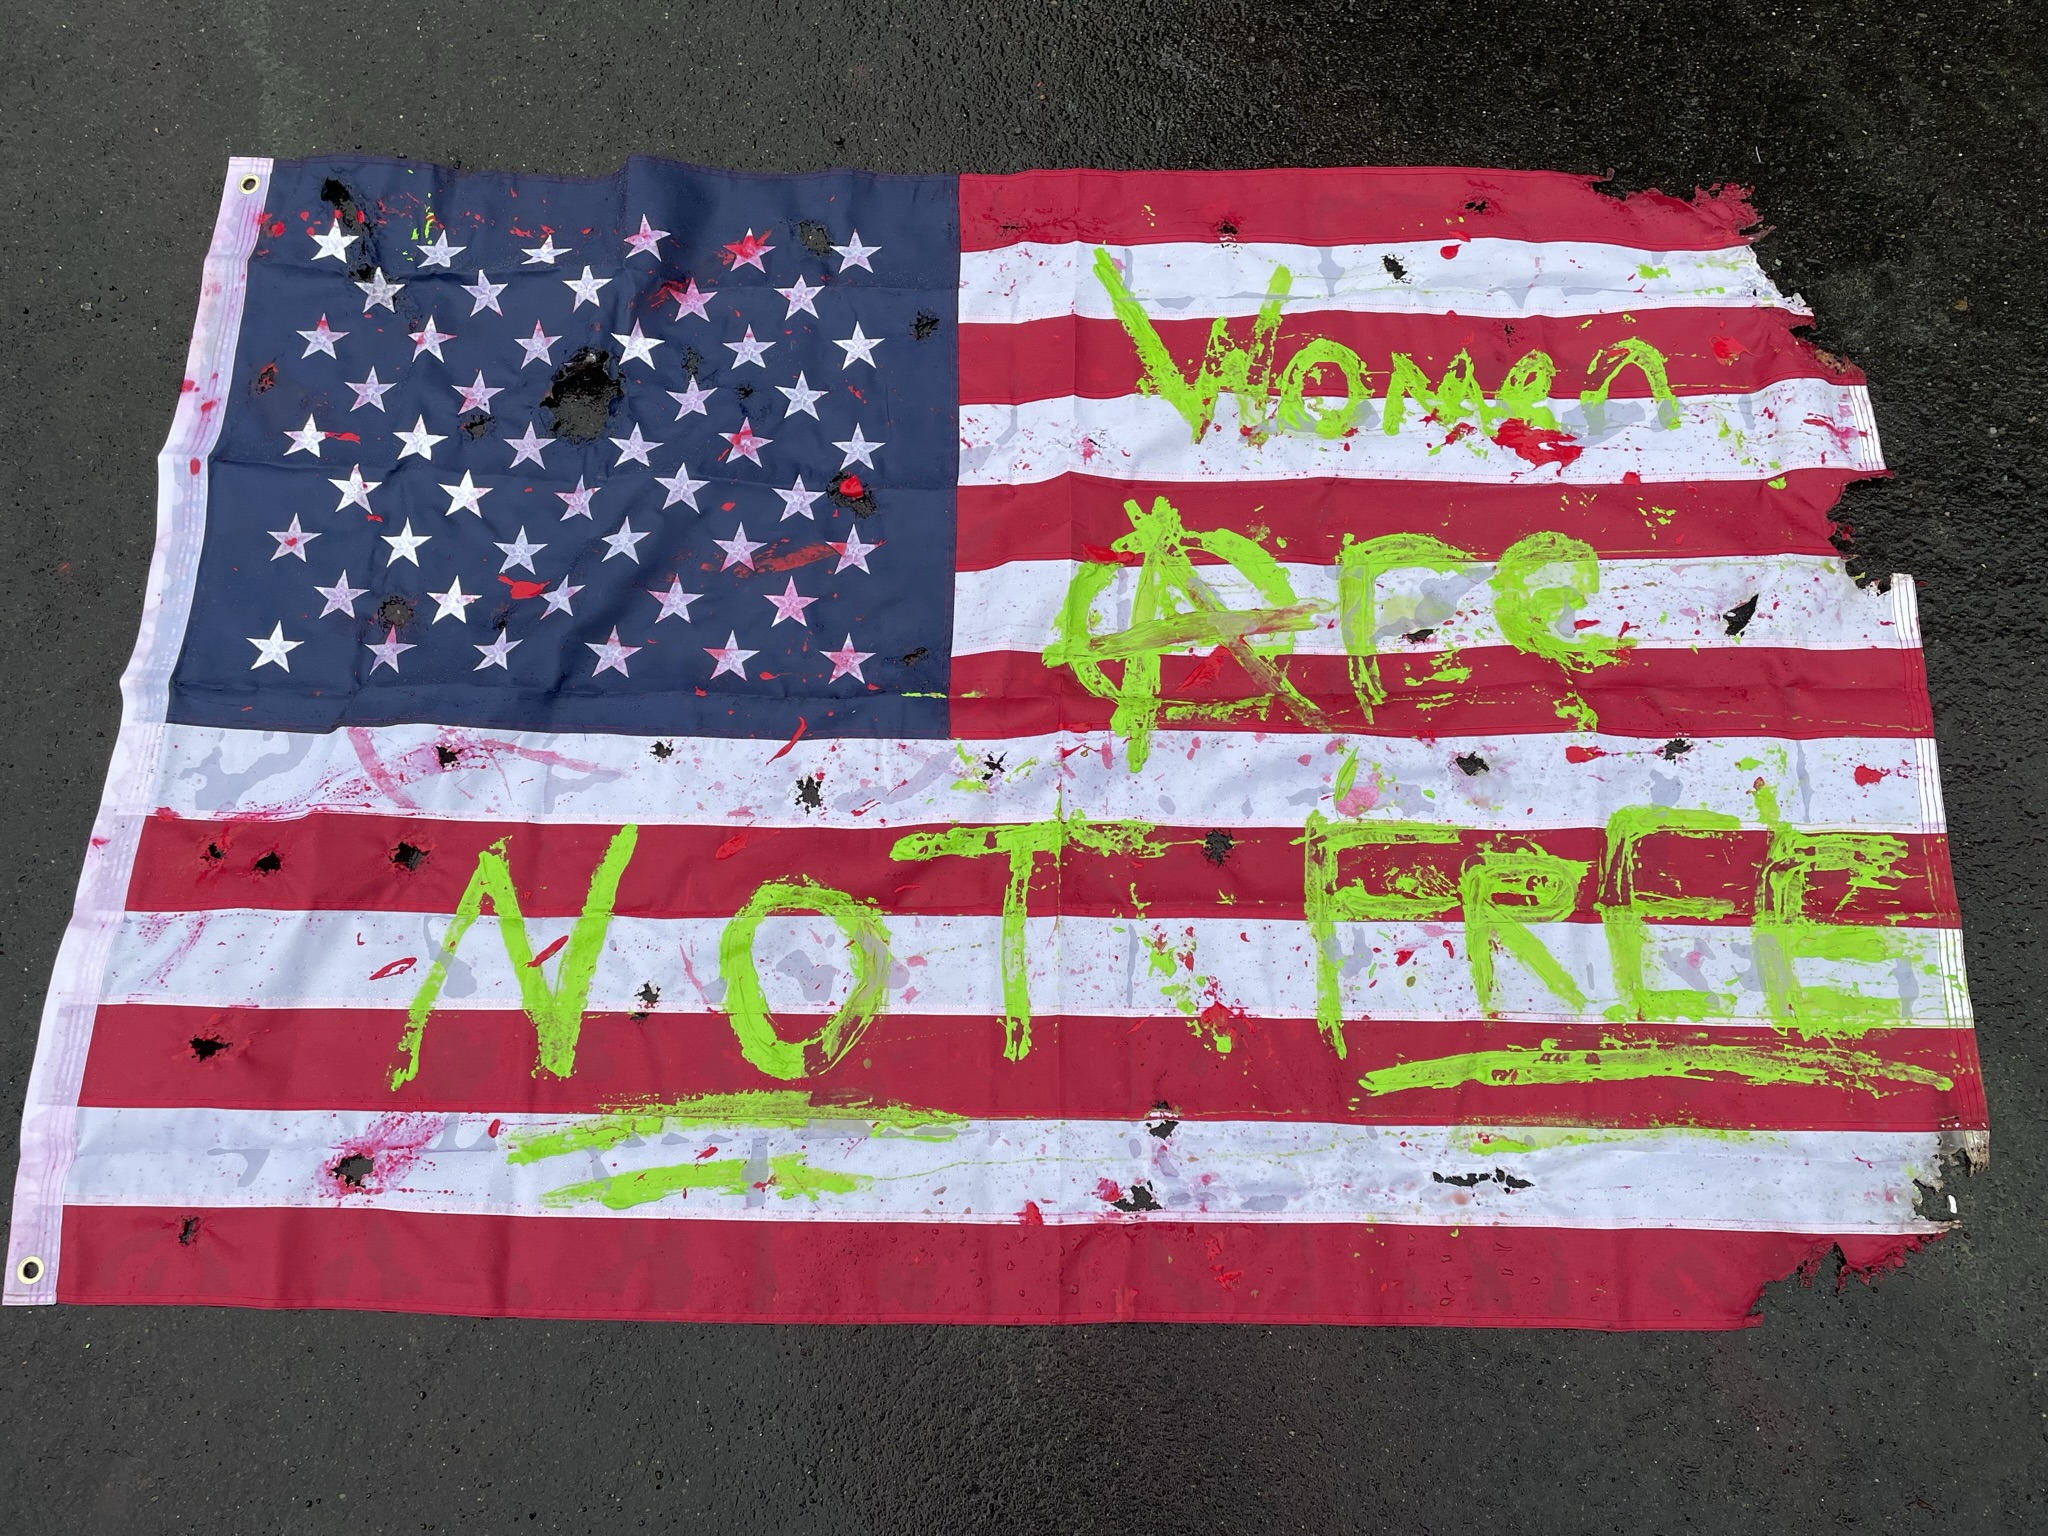 Women
Are
NOT FREE